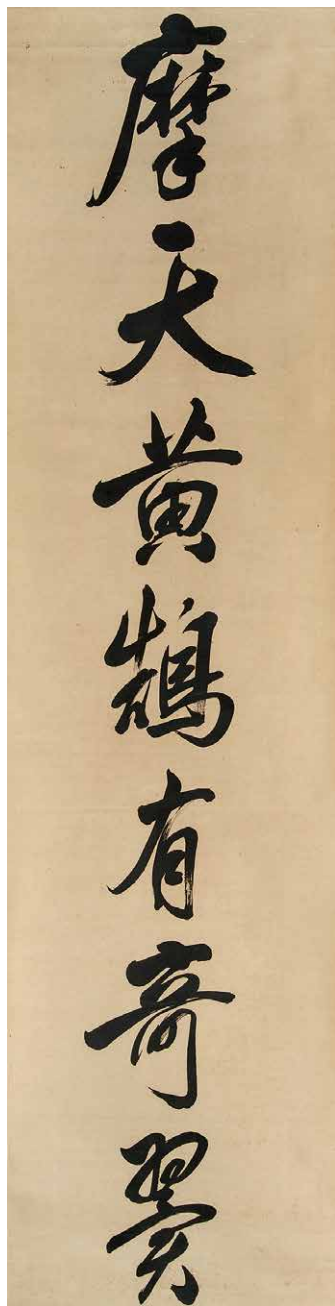 摩天黄鵠有奇翼